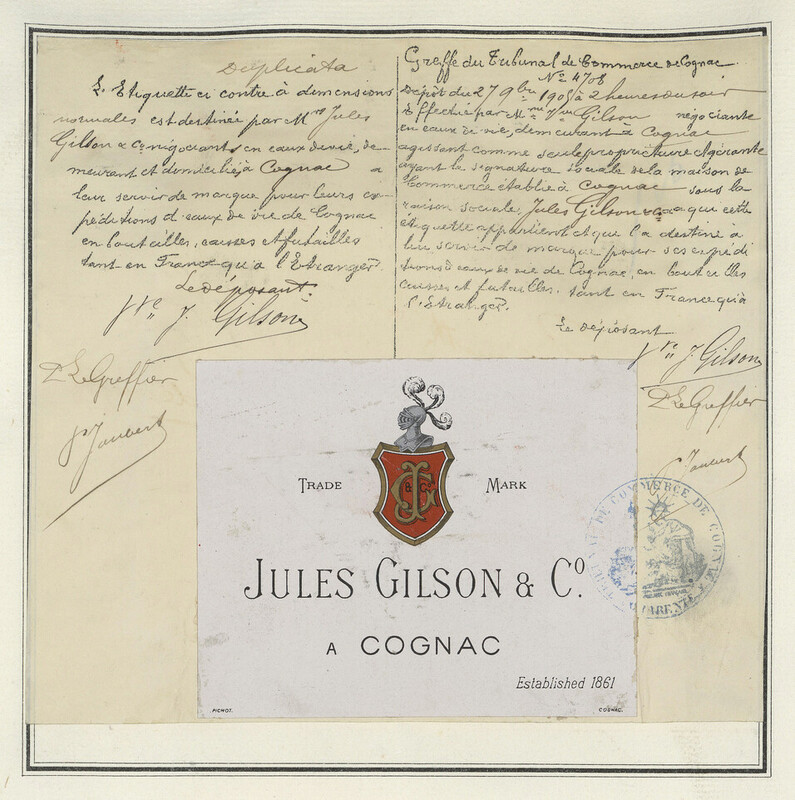 Duplicata
L'Etiquette ci contre à dimensions
normales est destinée par Mrs Jules
Gilson & Co négociants en eaux de vie, de-
meurant et domiciliés à Cognac a
leur servir de marque pour leurs ex-
péditions d'eaux de vie de Cognac
en bouteilles, caisses et futailles
tant en France qu'à l'Etranger.
Le déposant
Vve J. Gilson
Le Greffier
Greffe du Tribunal de Commerce de Cognac
No 4708
Dépôt du 27 9bre 1905 à 2 heures du soir
Effectué par Mme Vve Gilson négociante
en eaux de vie, demeurant à Cognac
agissant comme seule propriétaire & gérante
ayant la signature sociale de la maison de
Commerce établie à Cognac sous la
raison sociale Jules Gilson & Co a qui cette
étiquette appartient et que l'a destiné à
lui servir de marque pour ses expédi
tions d'eaux de vie de Cognac, en bouteilles
caisses et futailles, tant en France qu'à
l'Etranger.
Le déposant
Vve J. Gilson
Le Greffier
TRADE MARK
J G & Co
JULES GILSON & Co.
A COGNAC
Established 1861
PICHOT. COGNAC.
TRIBUNAL DE COMMERCE DE COGNAC
CHARENTE